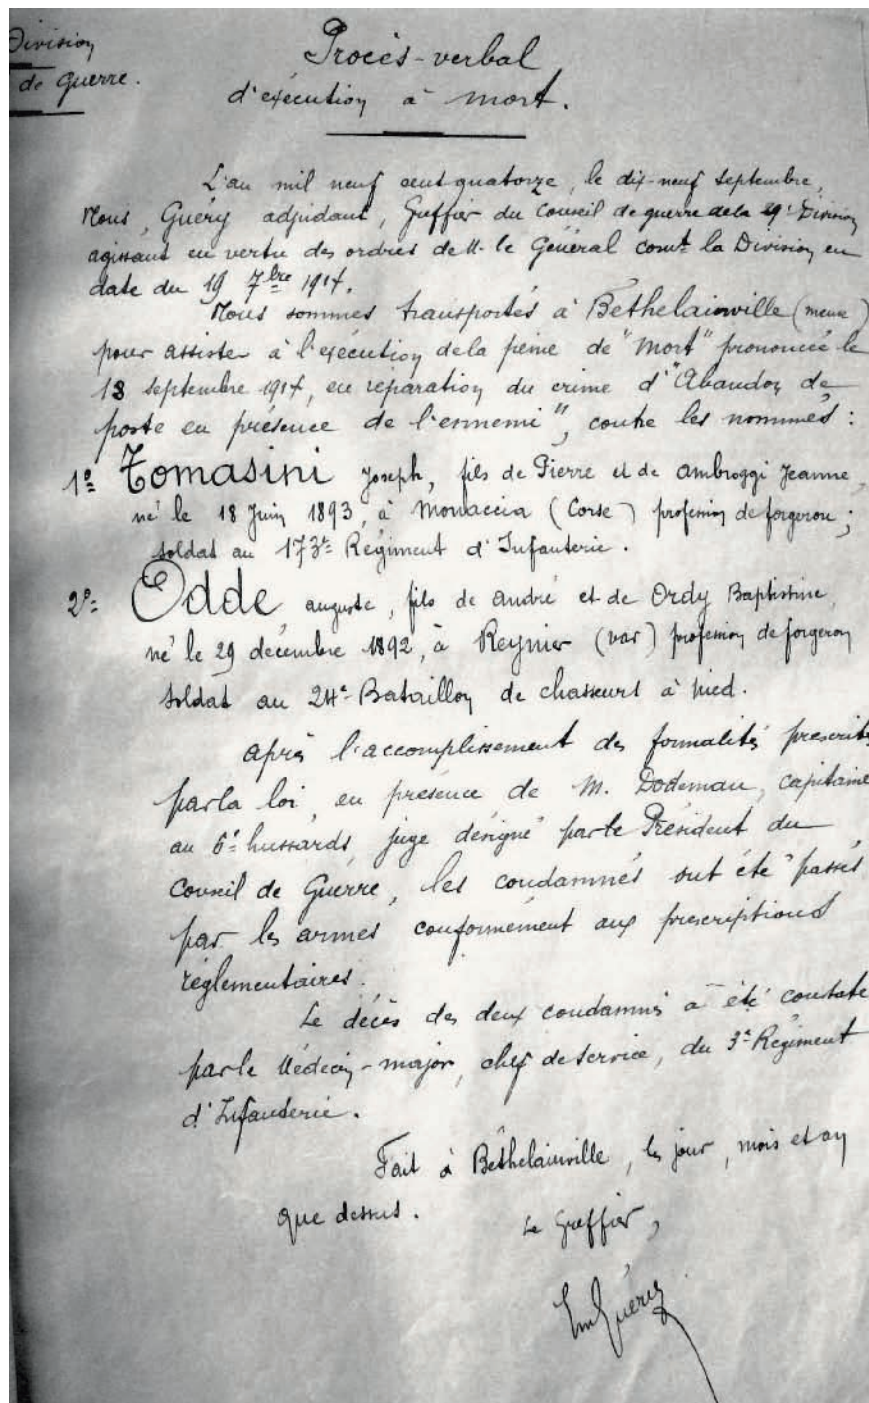 Division
de Guerre.
Procès-verbal
d'exécution à mort.
L'an mil neuf cent quatorze, le dix-neuf septembre,
Nous, Guéry adjudant, Greffier du Conseil de guerre de la 29e Division
agissant en vertu des ordres de M. le Général comt la Division en
date du 19 7bre 1914.
Nous sommes transportés à Béthelainville (meuse)
pour assister à l'exécution de la peine de "Mort" prononcée le
18 septembre 1914, en réparation du crime d'"Abandon de
poste en présence de l'ennemi", contre les nommés :
1o= Tomasini Joseph, fils de Pierre et de Ambroggi Jeanne,
né le 18 Juin 1893, à Monaccia (Corse) profession de forgeron ;
soldat au 173e Régiment d'Infanterie.
2o= Odde, auguste, fils de andré et de Ordy Baptistine,
né le 29 décembre 1892, à Reynier (var) profession de forgeron
soldat au 24e Bataillon de chasseurs à pied.
après l'accomplissement des formalités prescrites
par la loi, en présence de M. Dodeman, capitaine
au 6e hussards, juge désigné par le Président du
Conseil de Guerre, les condamnés ont été passés
par les armes conformément aux prescriptions
réglementaires.
Le décès des deux condamnés a été constaté
par le Médecin-major, chef de service, du 3e Régiment
d'Infanterie.
Fait à Béthelainville, les jour, mois et an
que dessus.
Le Greffier,
Em Guéry